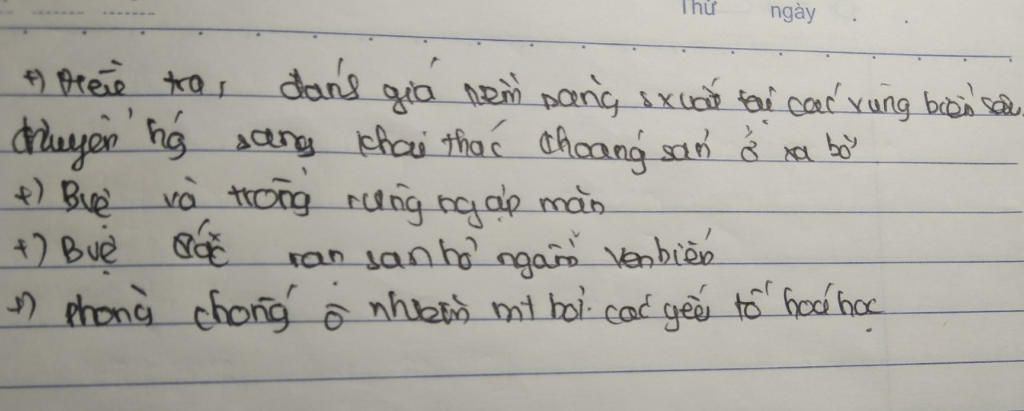 Thứ ngày . .
+) Điều tra, đánh giá tiềm năng sxuất tại các vùng biển sâu,
chuyển hg sang khai thác khoáng sản ở xa bờ
+) Bvệ và trồng rừng ngập mặn
+) Bvệ các rạn san hô ngầm ven biển
+) phòng chống ô nhiễm mt bởi các yếu tố hoá học